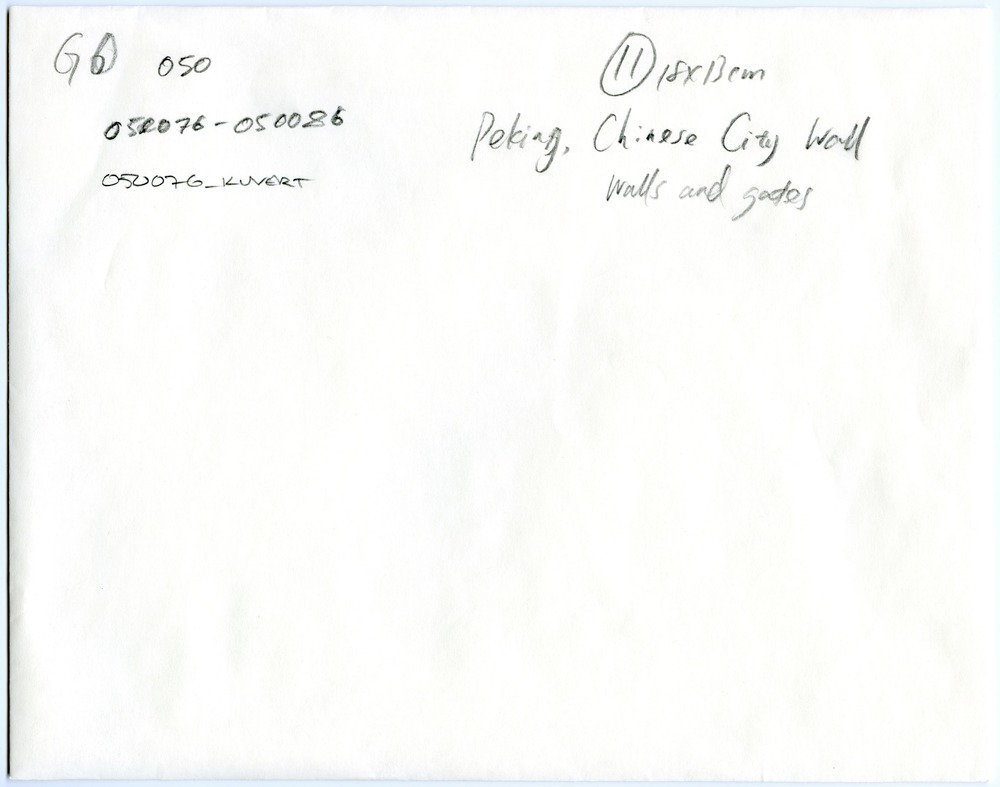 G6 050
050076-050086
050076_KUVERT
11 18x13cm
Peking, Chinese City Wall
Walls and gates